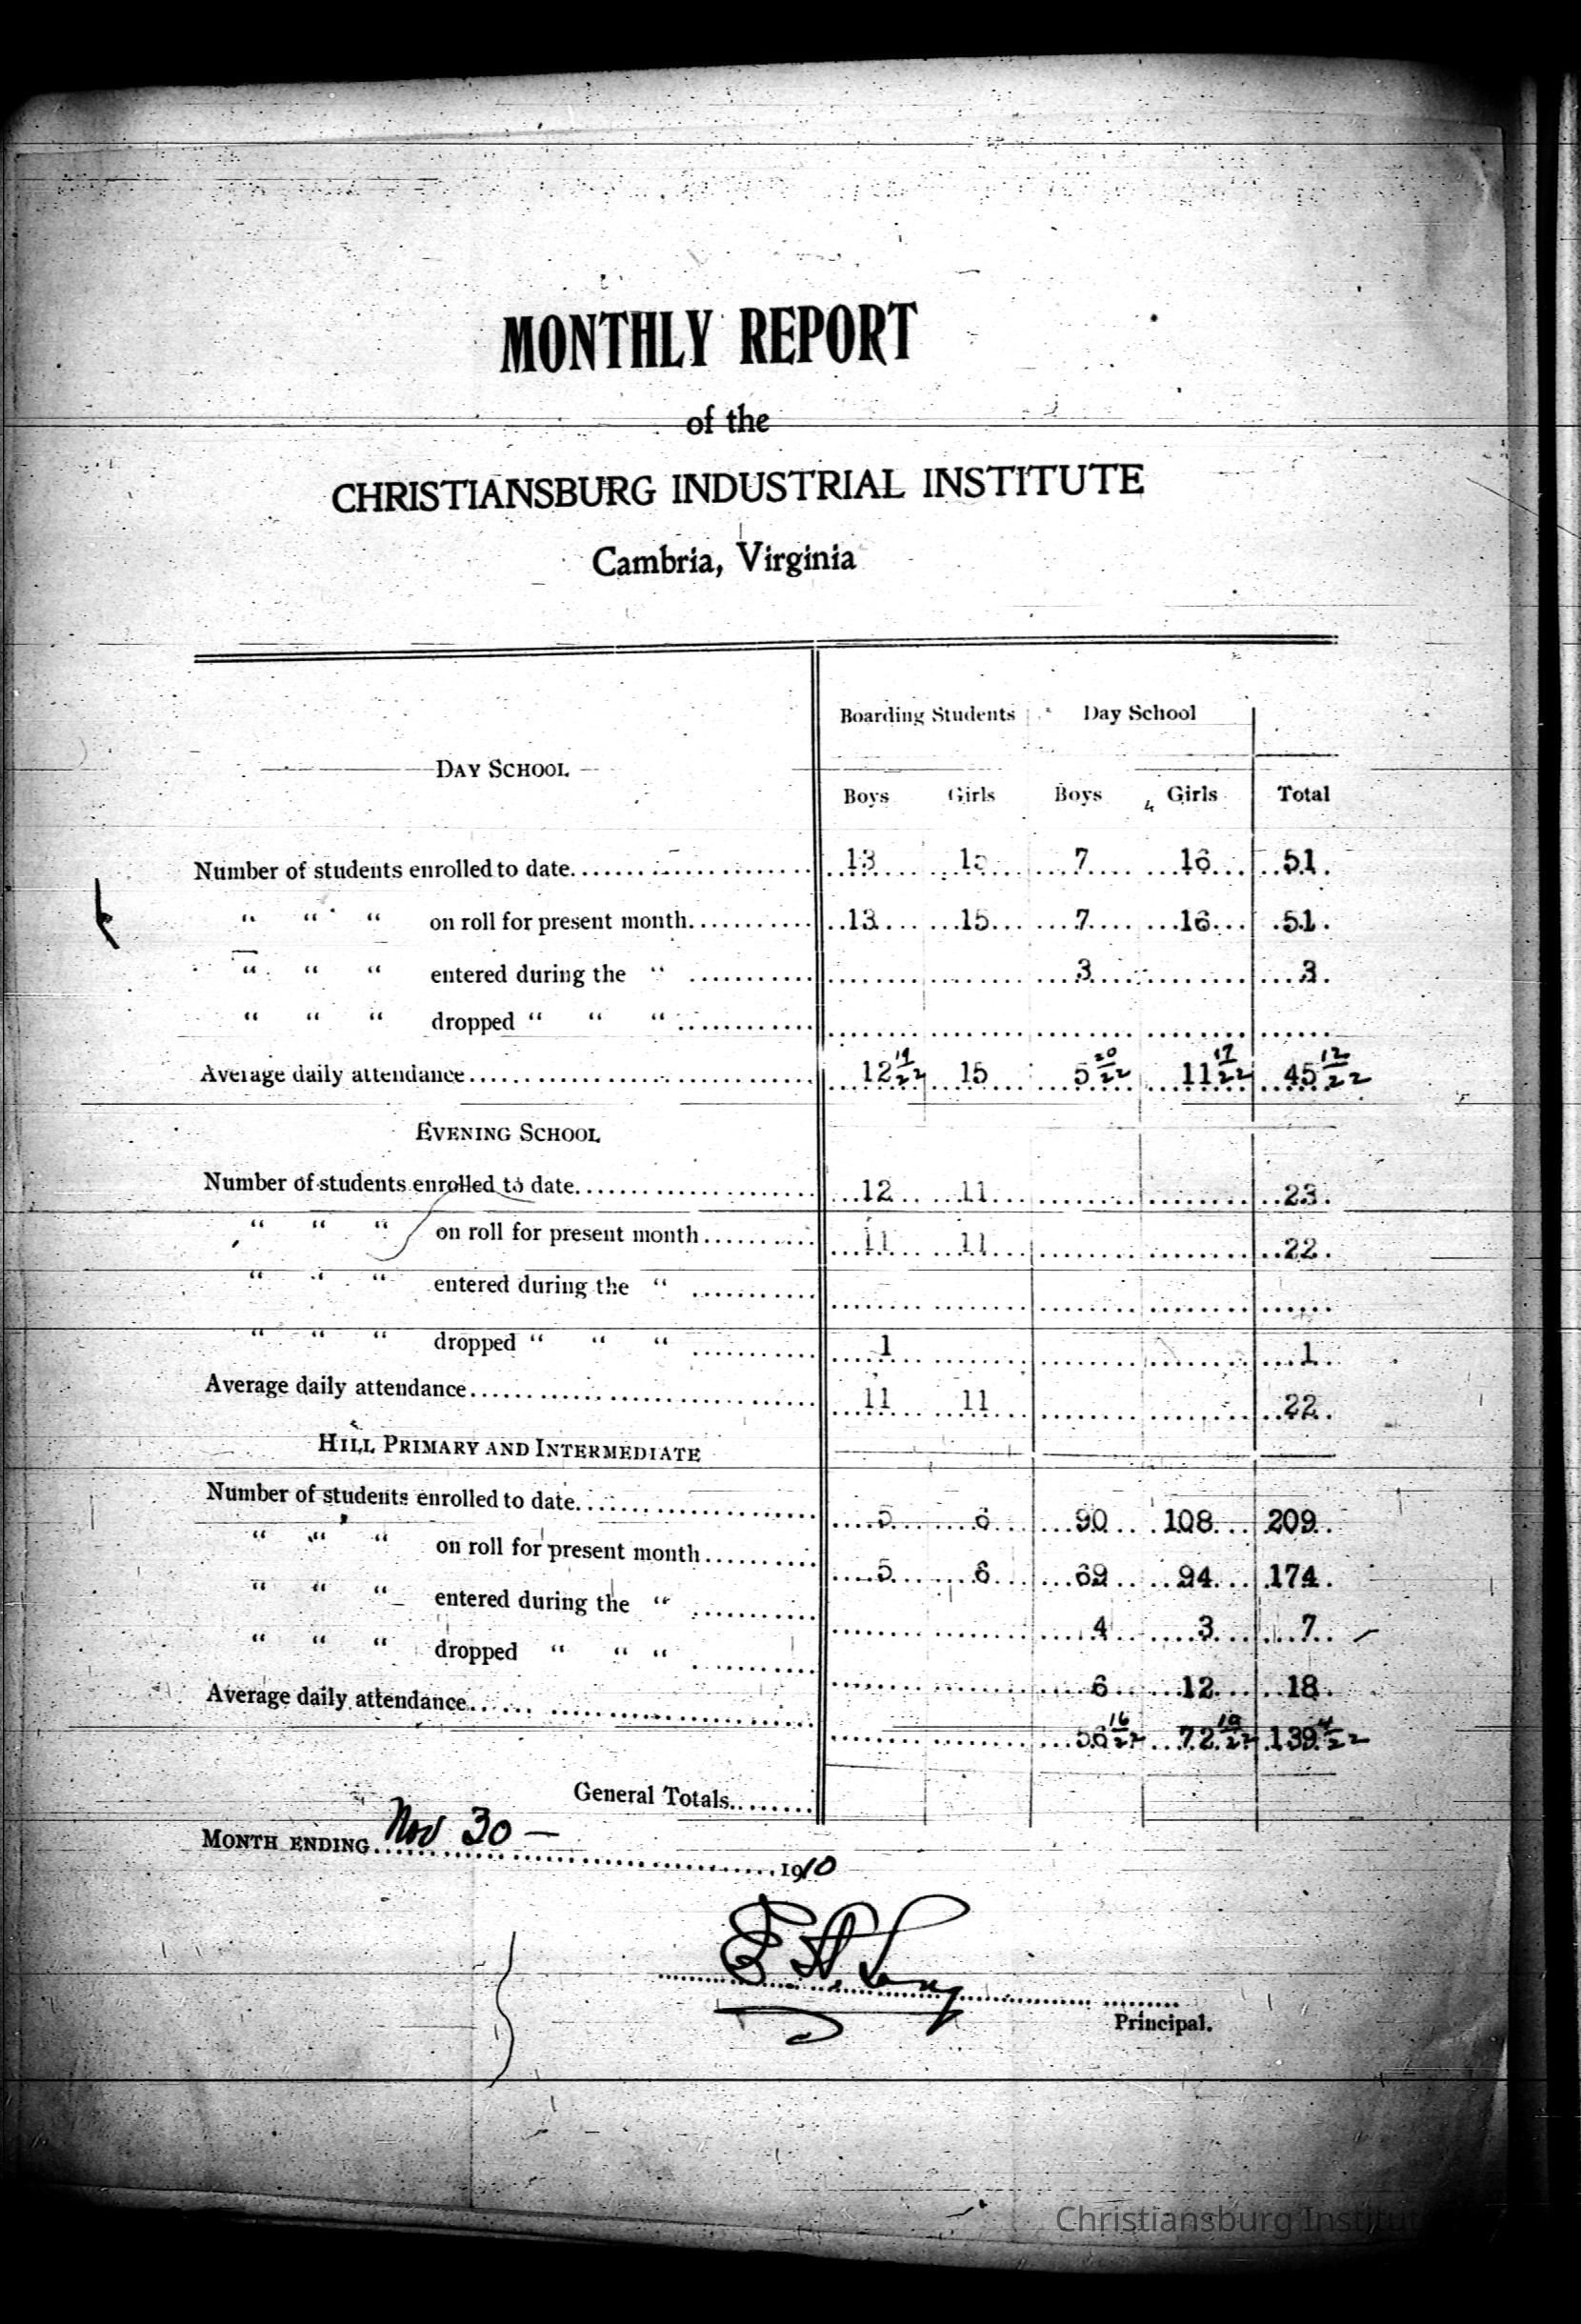 MONTHLY REPORT
of the
CHRISTIANSBURG INDUSTRIAL INSTITUTE
Cambria, Virginia
Boarding Students Day School
DAY SCHOOL
Boys Girls Boys Girls Total
Number of students enrolled to date 13 15 7 16 51
" " " on roll for present month 13 15 7 16 51
" " " entered during the " 3 3
" " " dropped " " "
Average daily attendance 12 15 5 20/22 11 17/22 45 12/22
EVENING SCHOOL
Number of students enrolled to date 12 11 23
" " " on roll for present month 11 11 22
" " " entered during the "
" " " dropped " " " 1 1
Average daily attendance 11 11 22
HILL PRIMARY AND INTERMEDIATE
Number of students enrolled to date 5 6 90 108 209
" " " on roll for present month 5 6 69 94 174
" " " entered during the " 4 3 7
" " " dropped " " " 6 12 18
Average daily attendance 56 16/22 72 139
General Totals
MONTH ENDING Nov 30 — 1910
Principal.
Christiansburg Institut